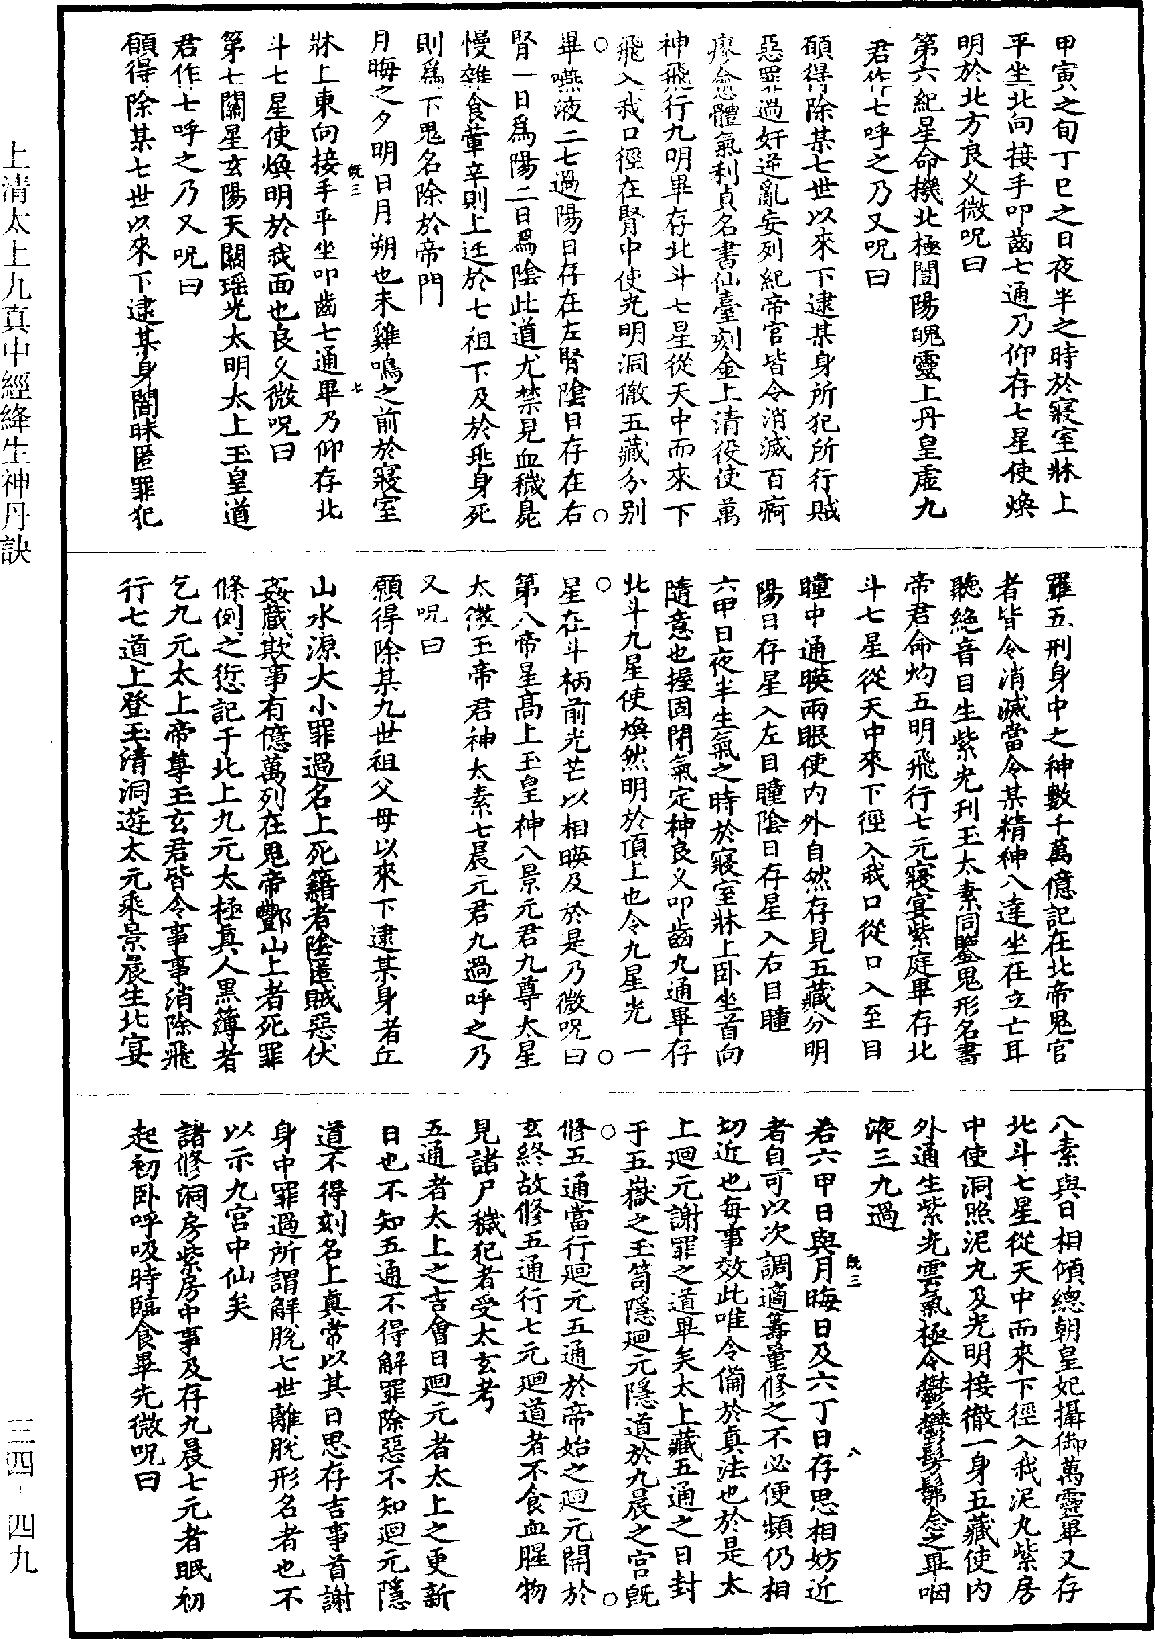 甲寅之旬丁巳之日夜半之時於寢室牀上
平坐北向接手叩齒七通乃仰存七星使煥
明於北方良久微呪曰
第六紀星命機北極闓陽魄靈上丹皇虛九
君作七呼之乃又呪曰
願得除某七世以來下逮某身所犯所行賊
惡罪過奸逆亂妄列紀帝官皆令消滅百痾
瘳愈體氣利貞名書仙臺刻金上清役使萬
神飛行九明畢存北斗七星從天中而來下
飛入我口徑在腎中使光明洞徹五藏分別
畢嚥液二七過陽日存在左腎陰日存在右
腎一日爲陽二日爲陰此道尤禁見血穢㲋
慢雜食葷辛則上迕於七祖下及於兆身死
則爲下鬼名除於帝門
月晦之夕明日月朔也未雞鳴之前於寢室
牀上東向接手平坐叩齒七通畢乃仰存北
斗七星使煥明於我面也良久微呪曰
第七關星玄陽天關瑶光太明太上玉皇道
君作七呼之乃又呪曰
願得除某七世以來下逮某身闇昧匿罪犯
羅五刑身中之神數千萬億記在北帝鬼官
者皆令消滅當令某精神八達坐在立亡耳
聽絶音目生紫光刋玉太素同鑒鬼形名書
帝君命灼五明飛行七元寢宴紫庭畢存北
斗七星從天中來下徑入我口從口入至目
瞳中通暎兩眼使内外自然存見五藏分明
陽日存星入左目瞳陰日存星入右目瞳
六甲日夜半生氣之時於寢室牀上卧坐首向
隨意也握固閉氣定神良久叩齒九通畢存
北斗九星使煥然明於頂上也令九星光一
星在斗柄前光芒以相暎及於是乃微呪曰
第八帝星高上玉皇神八景元君九尊太星
太漠玉帝君神太素七晨元君九過呼之乃
又呪曰
願得除某九世祖父母以來下逮某身者丘
山水源大小罪過名上死籍者陰匿賊惡伏
姦蔵欺事有億萬列在鬼帝酆山上者死罪
條例之愆記于北上九元太極真人黑簿者
乞九元太上帝尊玉玄君皆令事事消除飛
行七道上登玉清洞遊太元乘景晨生北宴
八素與日相傾總朝皇妃攝御萬靈畢又存
北斗七星從天中而來下徑入我泥丸紫房
中使洞照泥丸及光明接徹一身五藏使内
外通生紫光雲氣極令鬱鬱髣髴念之畢咽
液三九過
若六甲日與月晦日及六丁日存思相妨近
者自可以次調適筭量修之不必使頻仍相
切近也每事效此唯令備於真法也於是太
上廻元謝罪之道畢矣太上藏五通之日封
于五嶽之玉笥隱廻元隱道於九晨之宮旣
修五通當行廻元五通於帝始之廻元開於
玄終故修五通行七元廻道者不食血腥物
見諸尸穢犯者受太玄考
五通者太上之吉會日廻元者太上之更新
日也不知五通不得解罪除惡不知廻元隱
道不得刻名上真常以其日思存吉事首謝
身中罪過所謂解脫七世離脫形名者也不
以示九宮中仙矣
諸修洞房紫房中事及存九晨七元者眠初
起初卧呼吸時臨食畢先微呪曰
旣三
七
旣三
八
上清太上九真中經絳生神丹訣
三四·四九